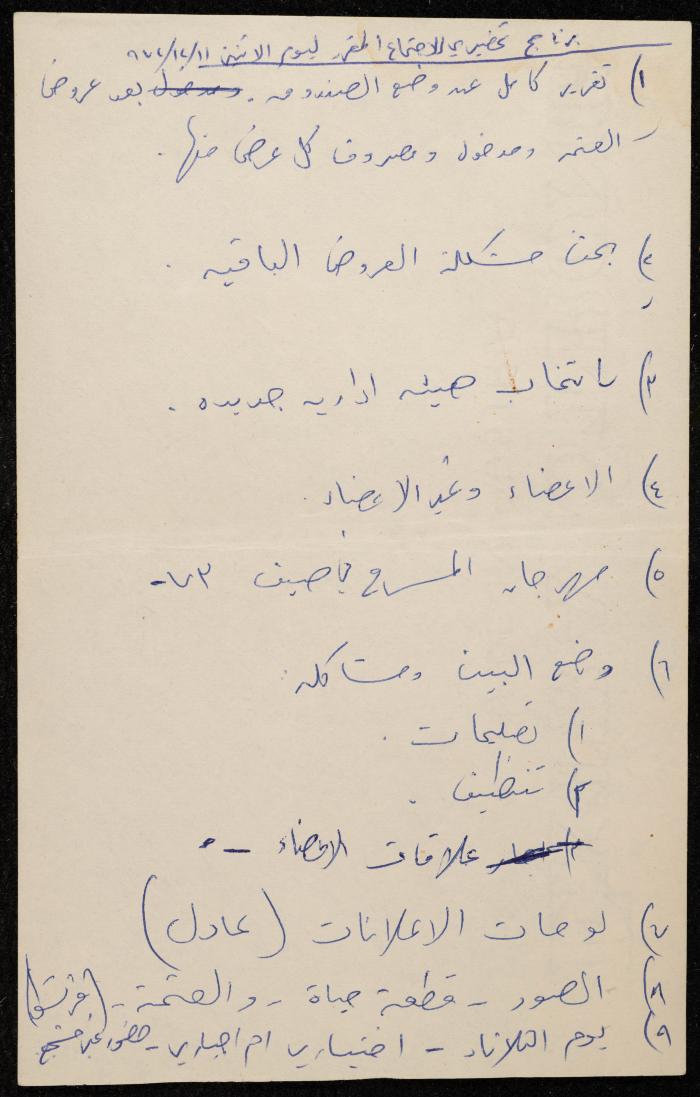 برنامج تحضيري للاجتماع المقرر ليوم الاثنين ١١/١٢/٩٧٢
١) تقرير كامل عن وضع الصندوق. بعد عروض
العتمه ومدخول ومصروف كل عرض منها.
٢) بحث مشكلة العروض الباقيه.
٣) انتخاب هيئه اداريه جديده.
٤) الاعضاء وغير الاعضاء.
٥) مهرجان المسرح في صيف ٧٣-
٦) وضع البيت ومشاكله:
١) تصليحات.
٢) تنظيف.
علاقات الاعضاء -.
٧) لوحات الاعلانات (عادل)
٨) الصور - قطعة حياة - والعتمة - (فرنسوا)
٩) يوم الثلاثاء - اختياري ام اجباري - حضور